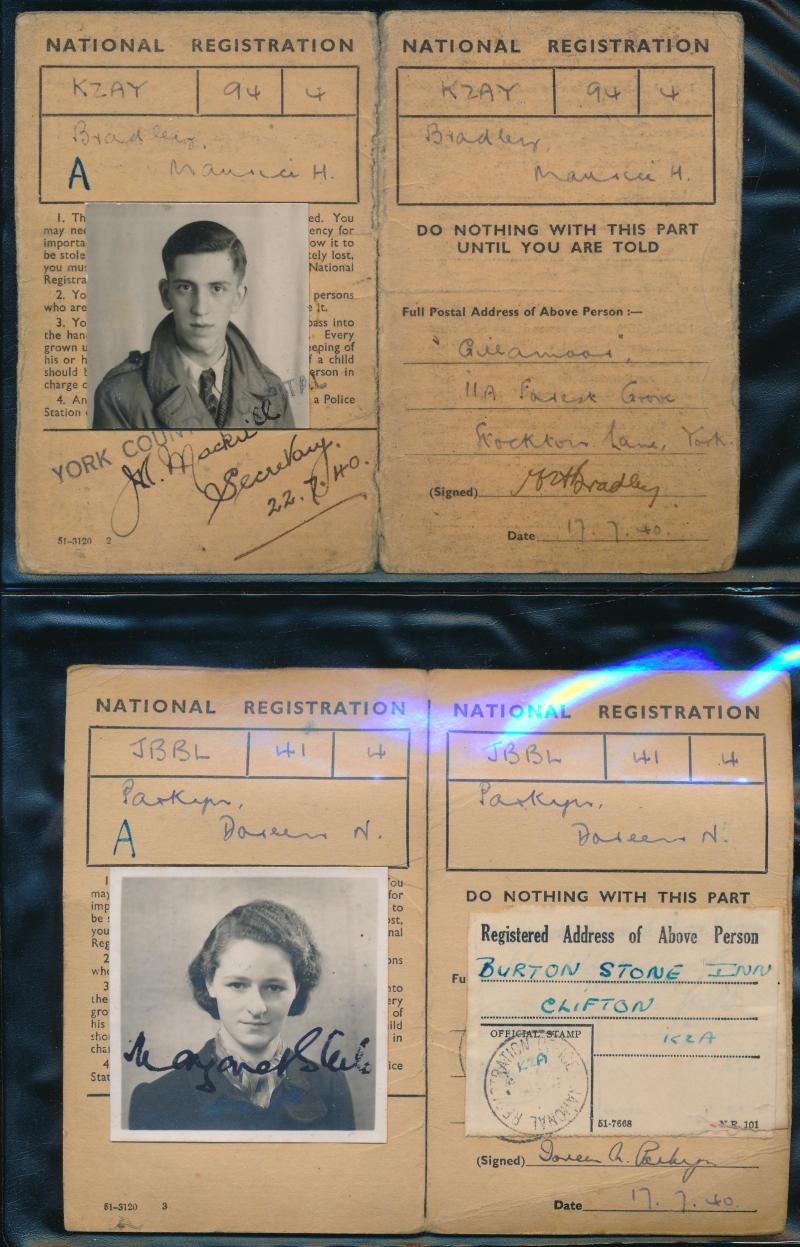 NATIONAL REGISTRATION
KZAY 94 4
Bradley,
A Maurice H.
1. Th ed. You
may nee ency for
importa ow it to
be stole tely lost,
you mus National
Registra
2. Yo persons
who are e it.
3. Yo pass into
the han . Every
grown u eeping of
his or h f a child
should b erson in
charge o
4. An a Police
Station
YORK COUN PITAL
Secretary.
22.7.40.
51-3120 2
NATIONAL REGISTRATION
KZAY 94 4
Bradley,
Maurice H.
DO NOTHING WITH THIS PART
UNTIL YOU ARE TOLD
Full Postal Address of Above Person :—
"Gillamoor",
11A Forest Grove
Stockton Lane, York.
(Signed) M H Bradley
Date 17.7.40.
NATIONAL REGISTRATION
JBBL 41 4
Parkyn,
A Doreen N.
1 You
may for
imp to
be s ost,
you nal
Reg
2 ons
who
3 nto
the ery
gro of
his ild
shou in
char
4 ice
Stat
Margaret Steel
51-3120 3
NATIONAL REGISTRATION
JBBL 41 4
Parkyn,
Doreen N.
DO NOTHING WITH THIS PART
Registered Address of Above Person
Fu
BURTON STONE INN
CLIFTON
OFFICIAL STAMP KZA
KZA
NATIONAL REGISTRATION
51-7668 N.R. 101
(Signed) Doreen N. Parkyn
Date 17.7.40.